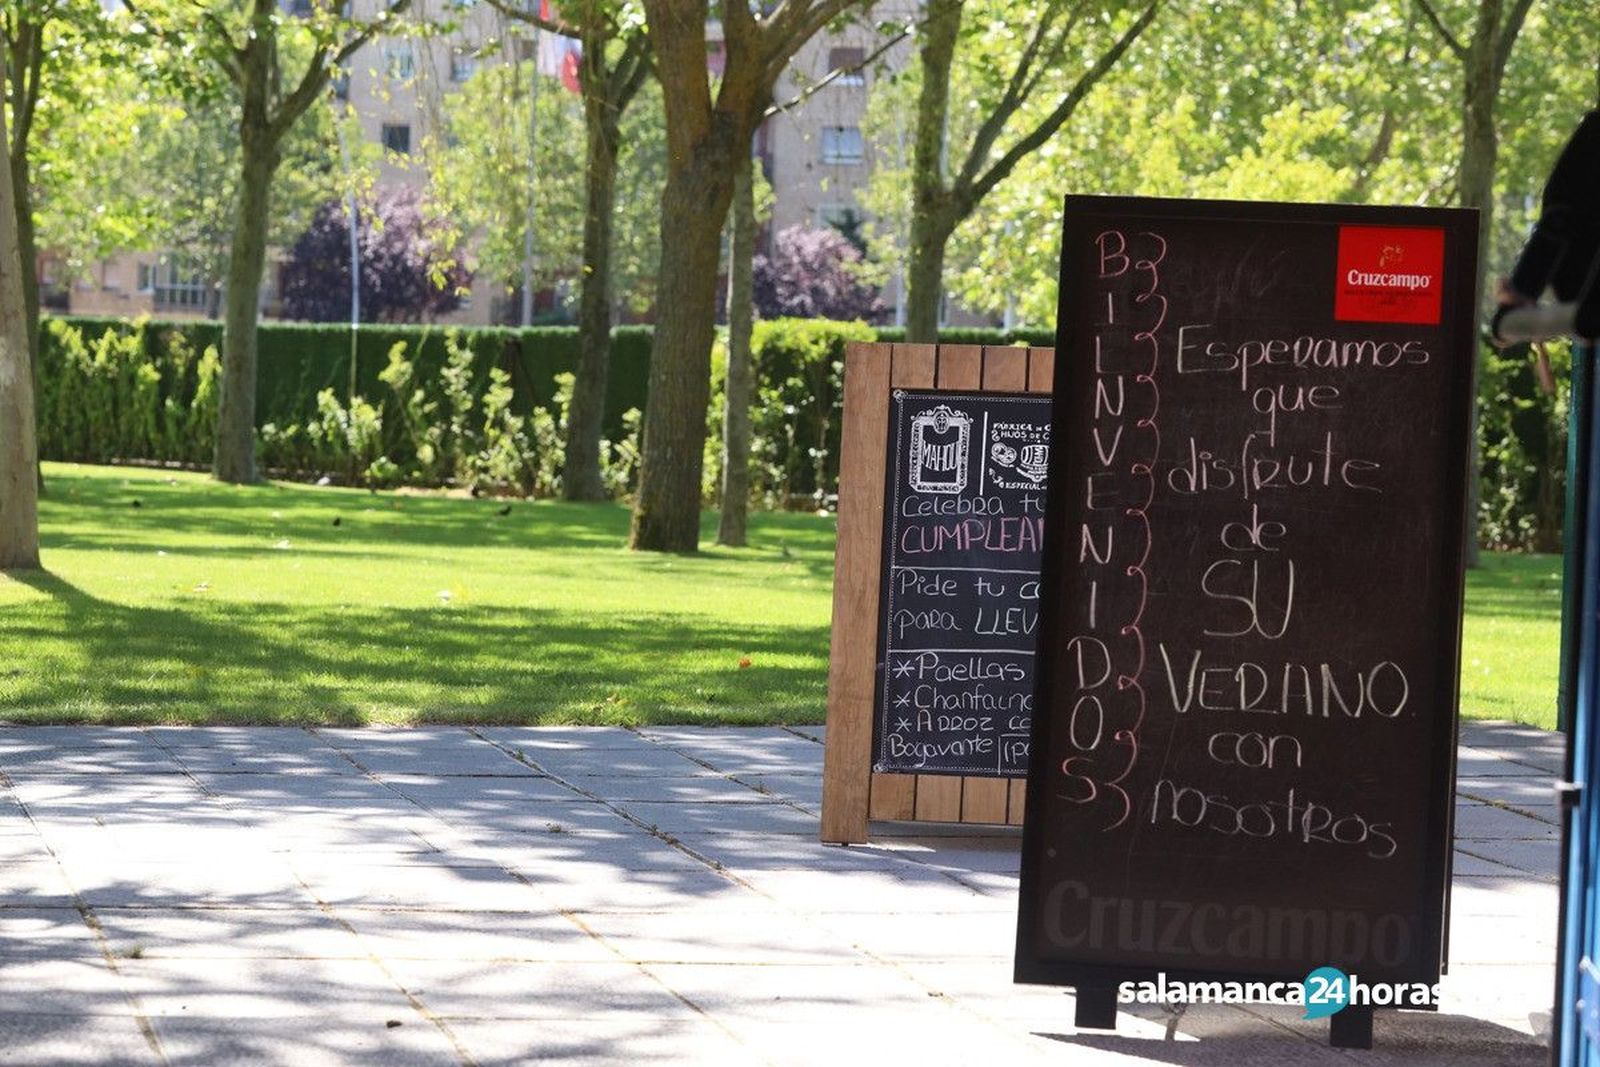 BIENVENIDOS
Cruzcampo
Esperamos
que
disfrute
de
SU
VERANO
con
nosotros
Cruzcampo
MAHOU
FÁBRICA DE C
HIJOS DE C
ESPECIAL
Celebra tu
CUMPLEA
Pide tu co
para LLEV
*Paellas
*Chanfaina
*Arroz co
Bogavante
salamanca24horas